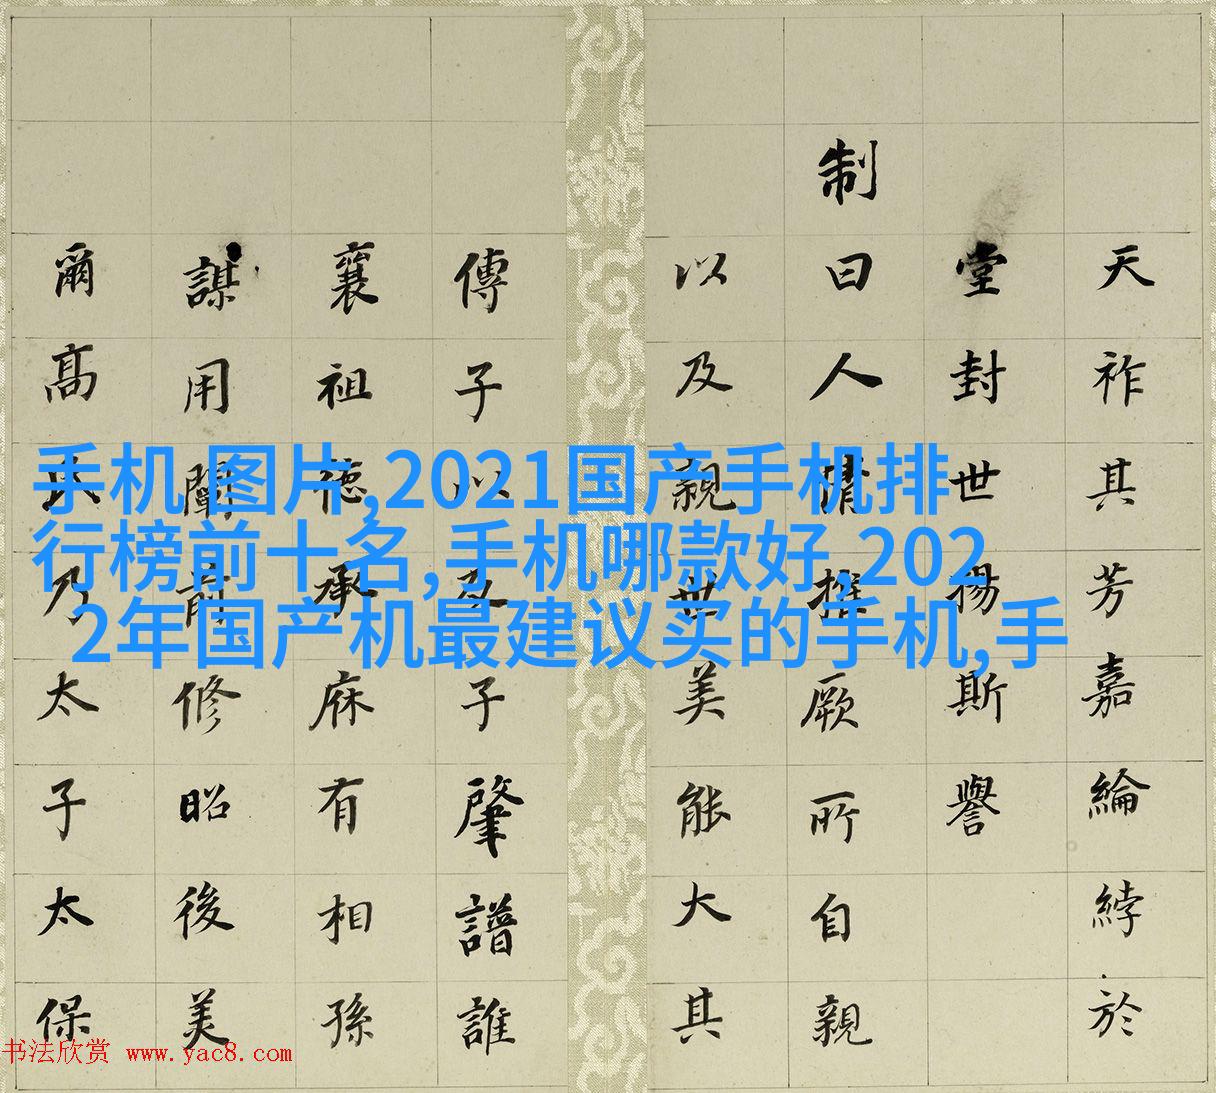 天祚其芳嘉綸綍於
堂封世揚斯譽
制曰人情厥所自親
以及親世美能大其
傳子以及子肇譜誰
襄祖德承庥有相孫
謀用闡前修昭後美
爾高氏乃太子太保
手机 图片,2021国产手机排
行榜前十名,手机哪款好,202
2年国产机最建议买的手机,手
书法欣赏 www.yac8.com